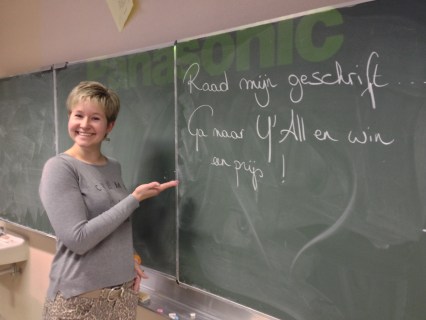 Panasonic
Raad mijn geschrift ....
Ga naar Y'All en win
een prijs !